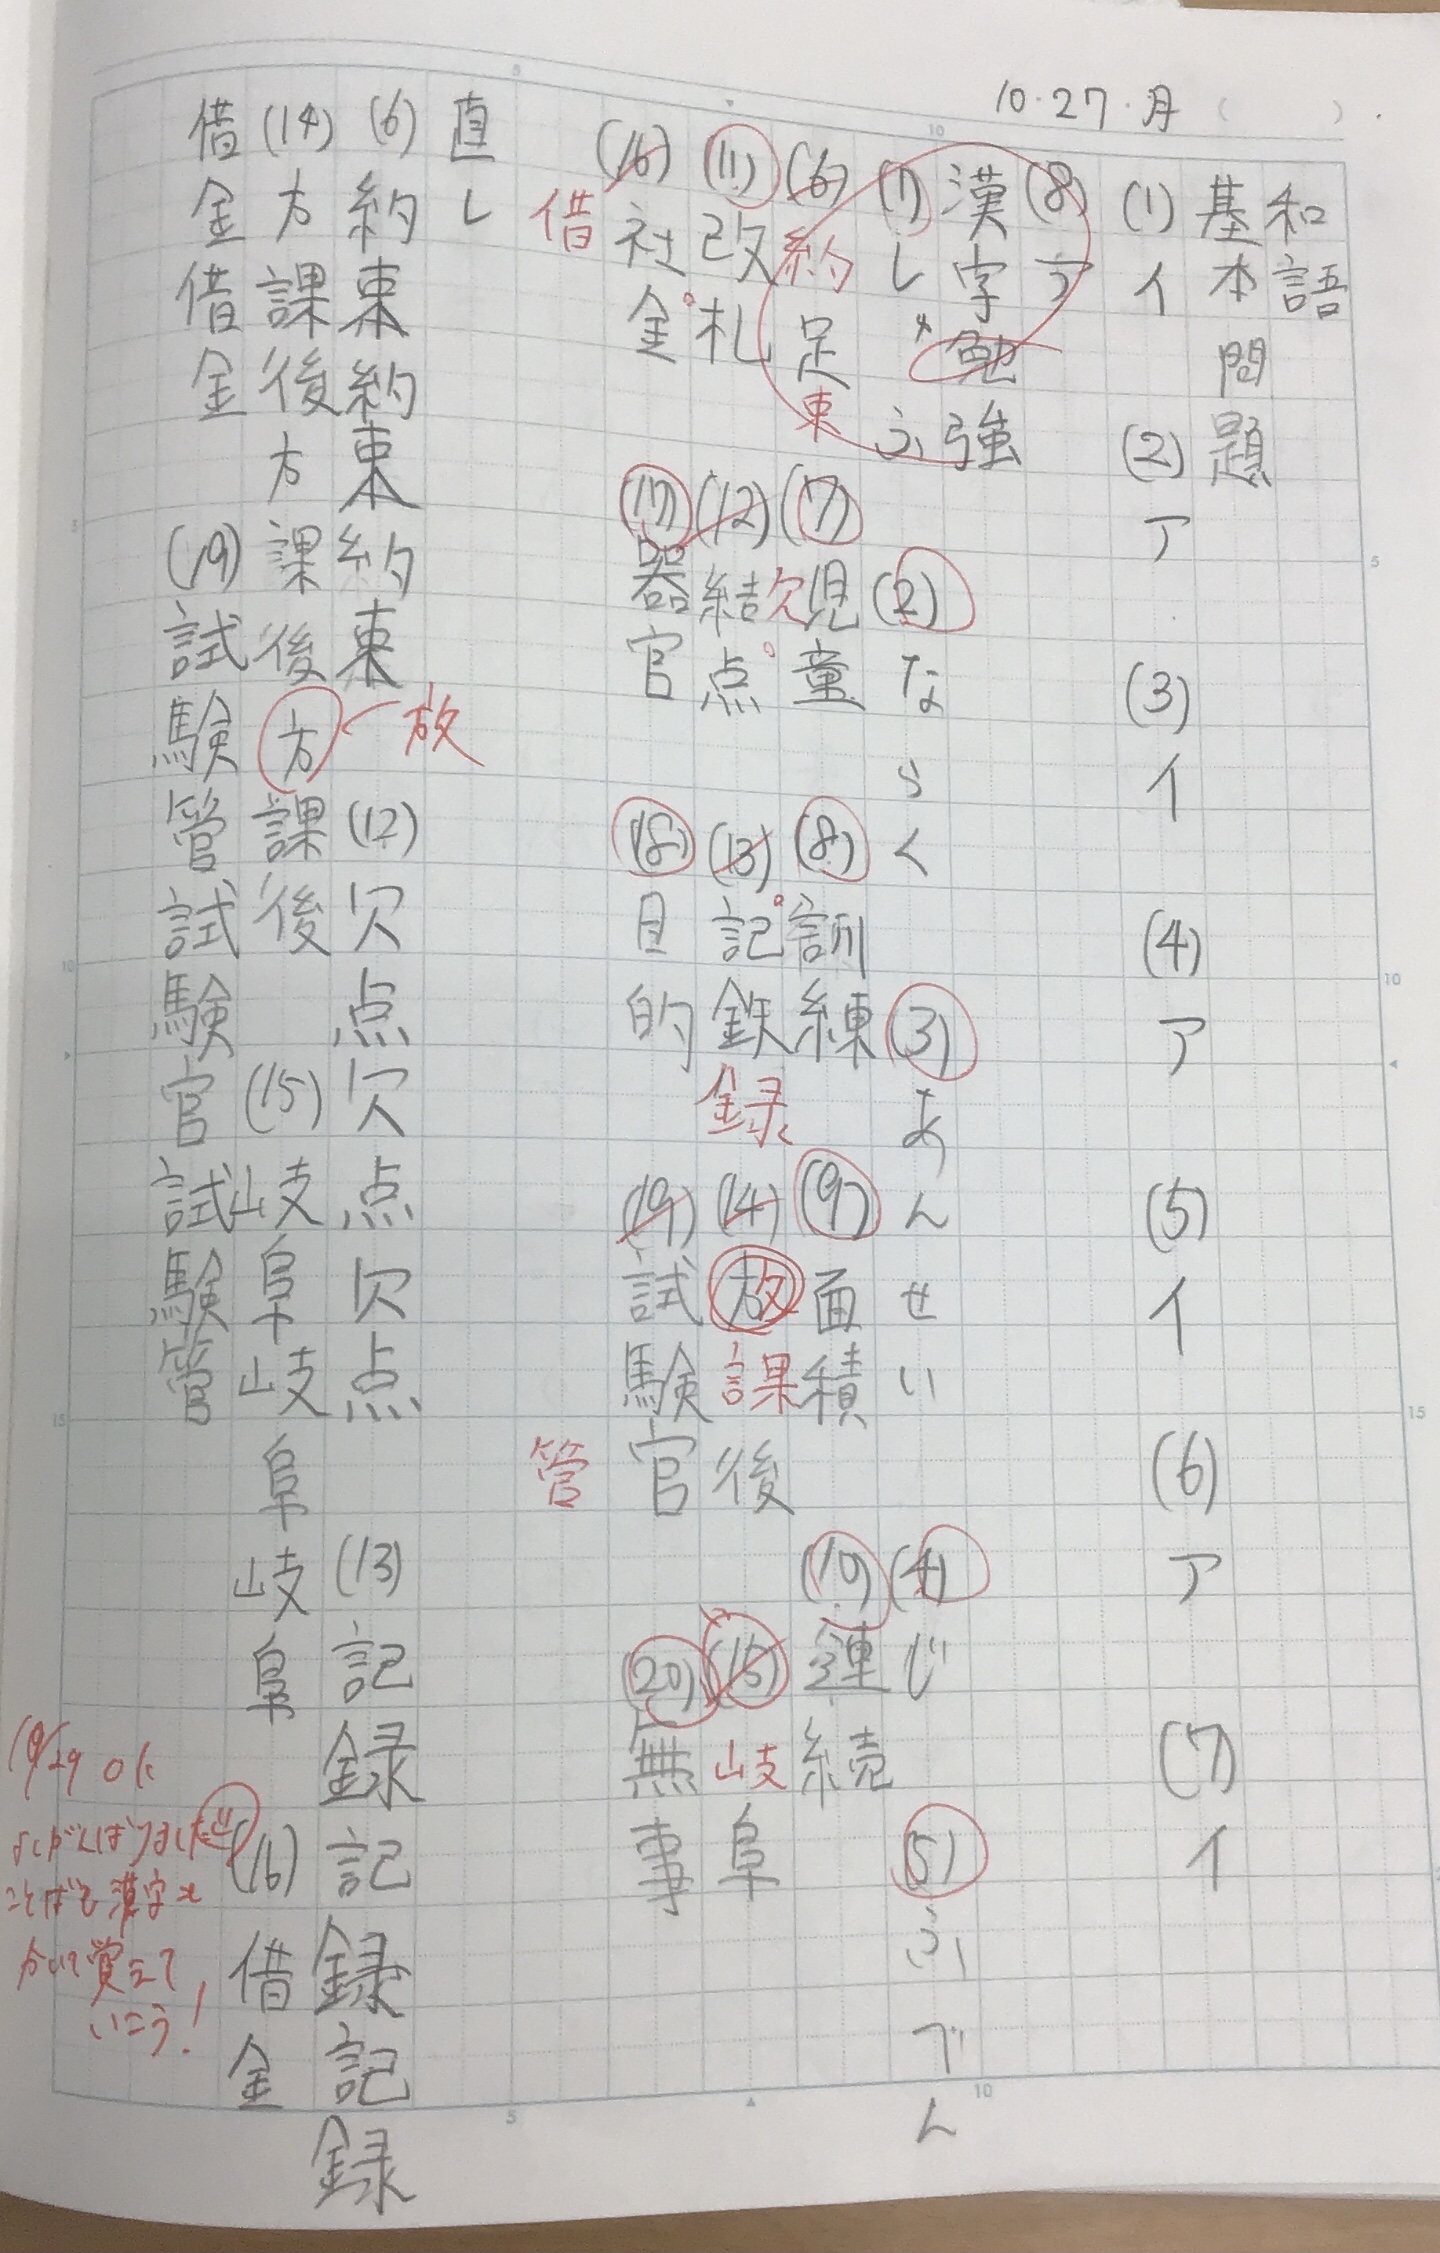 10.27.月（　）
和語
基本問題
(1)イ (2)ア (3)イ (4)ア (5)イ (6)ア (7)イ
(8)ア
漢字勉強
(1)しゃふ (2)ならく (3)あんせい (4)じ (5)ふでん
(6)約足束 (7)児童 (8)訓練 (9)面積 (10)連続
(11)改札 (12)結欠点 (13)記鉄録 (14)放課後 (15)岐阜
(16)社金 (17)器官 (18)目的 (19)試験官 (20)無事
借 管
直し
(6)約束約束約束 (12)欠点欠点欠点 (13)記録記録記録
放
(14)方課後方課後方課後 (15)岐阜岐阜岐阜 (16)借金
借金借金 (19)試験管試験官試験管
10/29 〇に
よくがんばりました
ことばを漢字
覚えて
いこう！